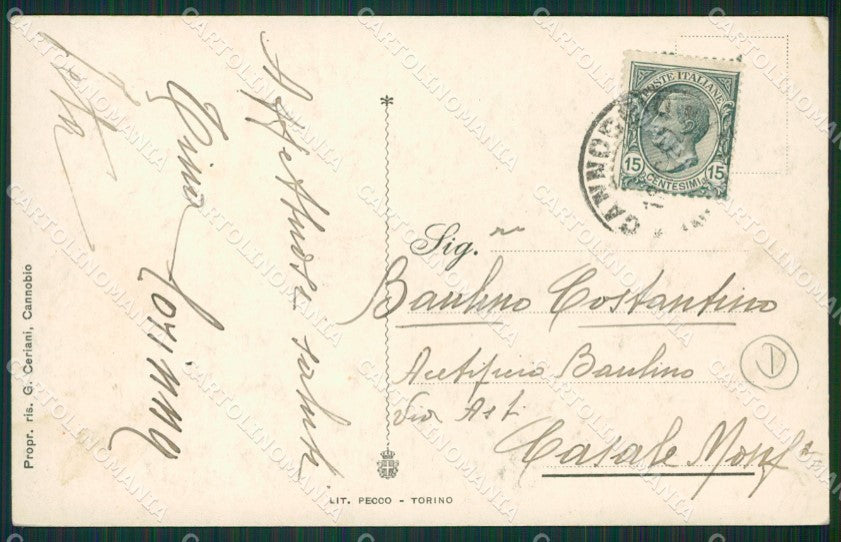 Affettuosi saluti
POSTE ITALIANE
15 CENTESIMI 15
CANNOB
Sig.re
Baulino Costantino
Acetificio Baulino
Via Asti
Casale Monf
LIT. PECCO - TORINO
Propr. ris. G. Ceriani, Cannobio
CARTOLINOMANIA